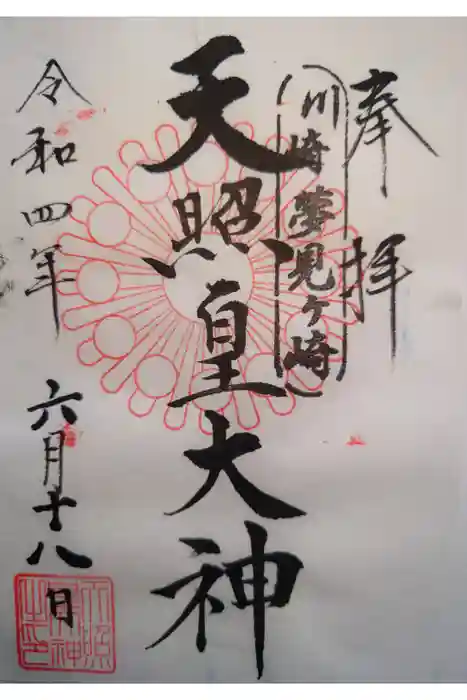 奉拝
（川崎夢見ヶ崎）
天照皇大神
令和四年
六月十八日